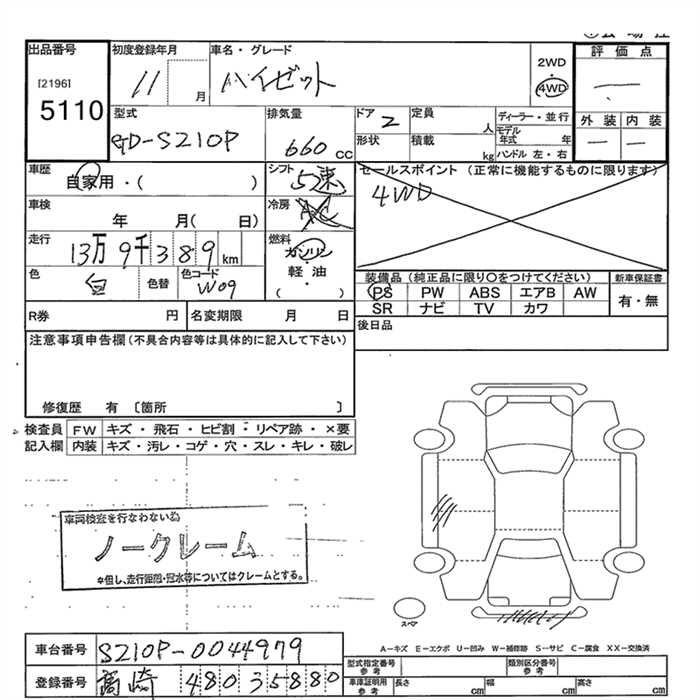 出品番号 [2196] 5110
初度登録年月 11 月
車名・グレード ハイゼット
2WD 4WD
評価点
型式 GD-S210P
排気量 660 cc
ドア 2
定員 人
ディーラー・並行
モデル年式 年
外装 内装
形状
積載 kg
ハンドル 左・右
車歴 自家用・( )
シフト 5速
セールスポイント (正常に機能するものに限ります)
4WD
車検 年 月( 日)
冷房 AC
走行 13万9千389 km
燃料 ガソリン
軽・油
( )
色 白 色替 色コード W09
装備品(純正品に限り○をつけてください) 新車保証書
PS PW ABS エアB AW 有・無
SR ナビ TV カワ
R券 円 名変期限 月 日
後日品
注意事項申告欄(不具合内容等は具体的に記入して下さい)
修復歴 有〔箇所 〕
検査員 FW キズ・飛石・ヒビ割・リペア跡・×要
記入欄 内装 キズ・汚レ・コゲ・穴・スレ・キレ・破レ
車両検査を行なわない為
ノークレーム
*但し、走行距離・冠水等についてはクレームとする。
スペア
A－キズ E－エクボ U－凹み W－補修跡 S－サビ C－腐食 XX－交換済
車台番号 S210P-0044979
型式指定番号 参考
類別区分番号 参考
登録番号 高崎 480 35880
車庫証明用 参考 長さ cm 幅 cm 高さ cm